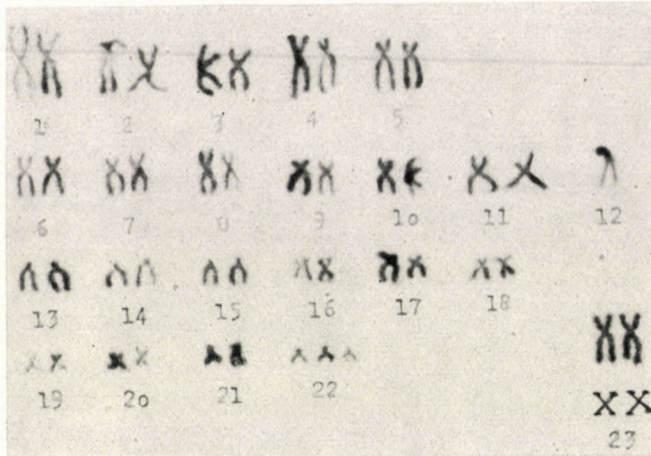 1 2 3 4 5
6 7 8 9 10 11 12
13 14 15 16 17 18
19 20 21 22
X X
23